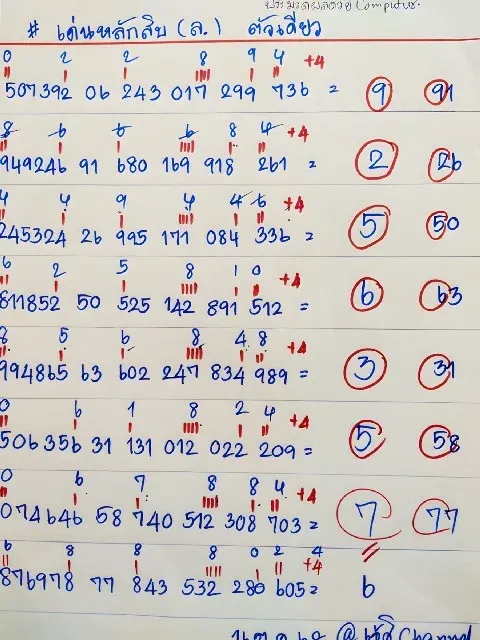 ประมวลผลด้วย Computer.
# เด่นหลักสิบ (ล.) ตัวเดียว
0 2 2 8 9 4 +4
507392 06 243 017 299 736 = 9 91
8 6 6 6 8 4 +4
949246 91 680 169 918 261 = 2 26
4 4 9 4 4 6 +4
245324 26 995 171 084 336 = 5 50
6 2 5 8 1 0 +4
811852 50 525 142 891 512 = 6 63
8 5 6 8 4 8 +4
994865 63 602 247 834 989 = 3 31
0 6 1 8 2 4 +4
506356 31 131 012 022 209 = 5 58
0 6 7 8 8 4 +4
074646 58 740 512 308 703 = 7 77
6 8 8 8 0 2 4 +4
876978 77 843 532 280 605 = 6
Channel